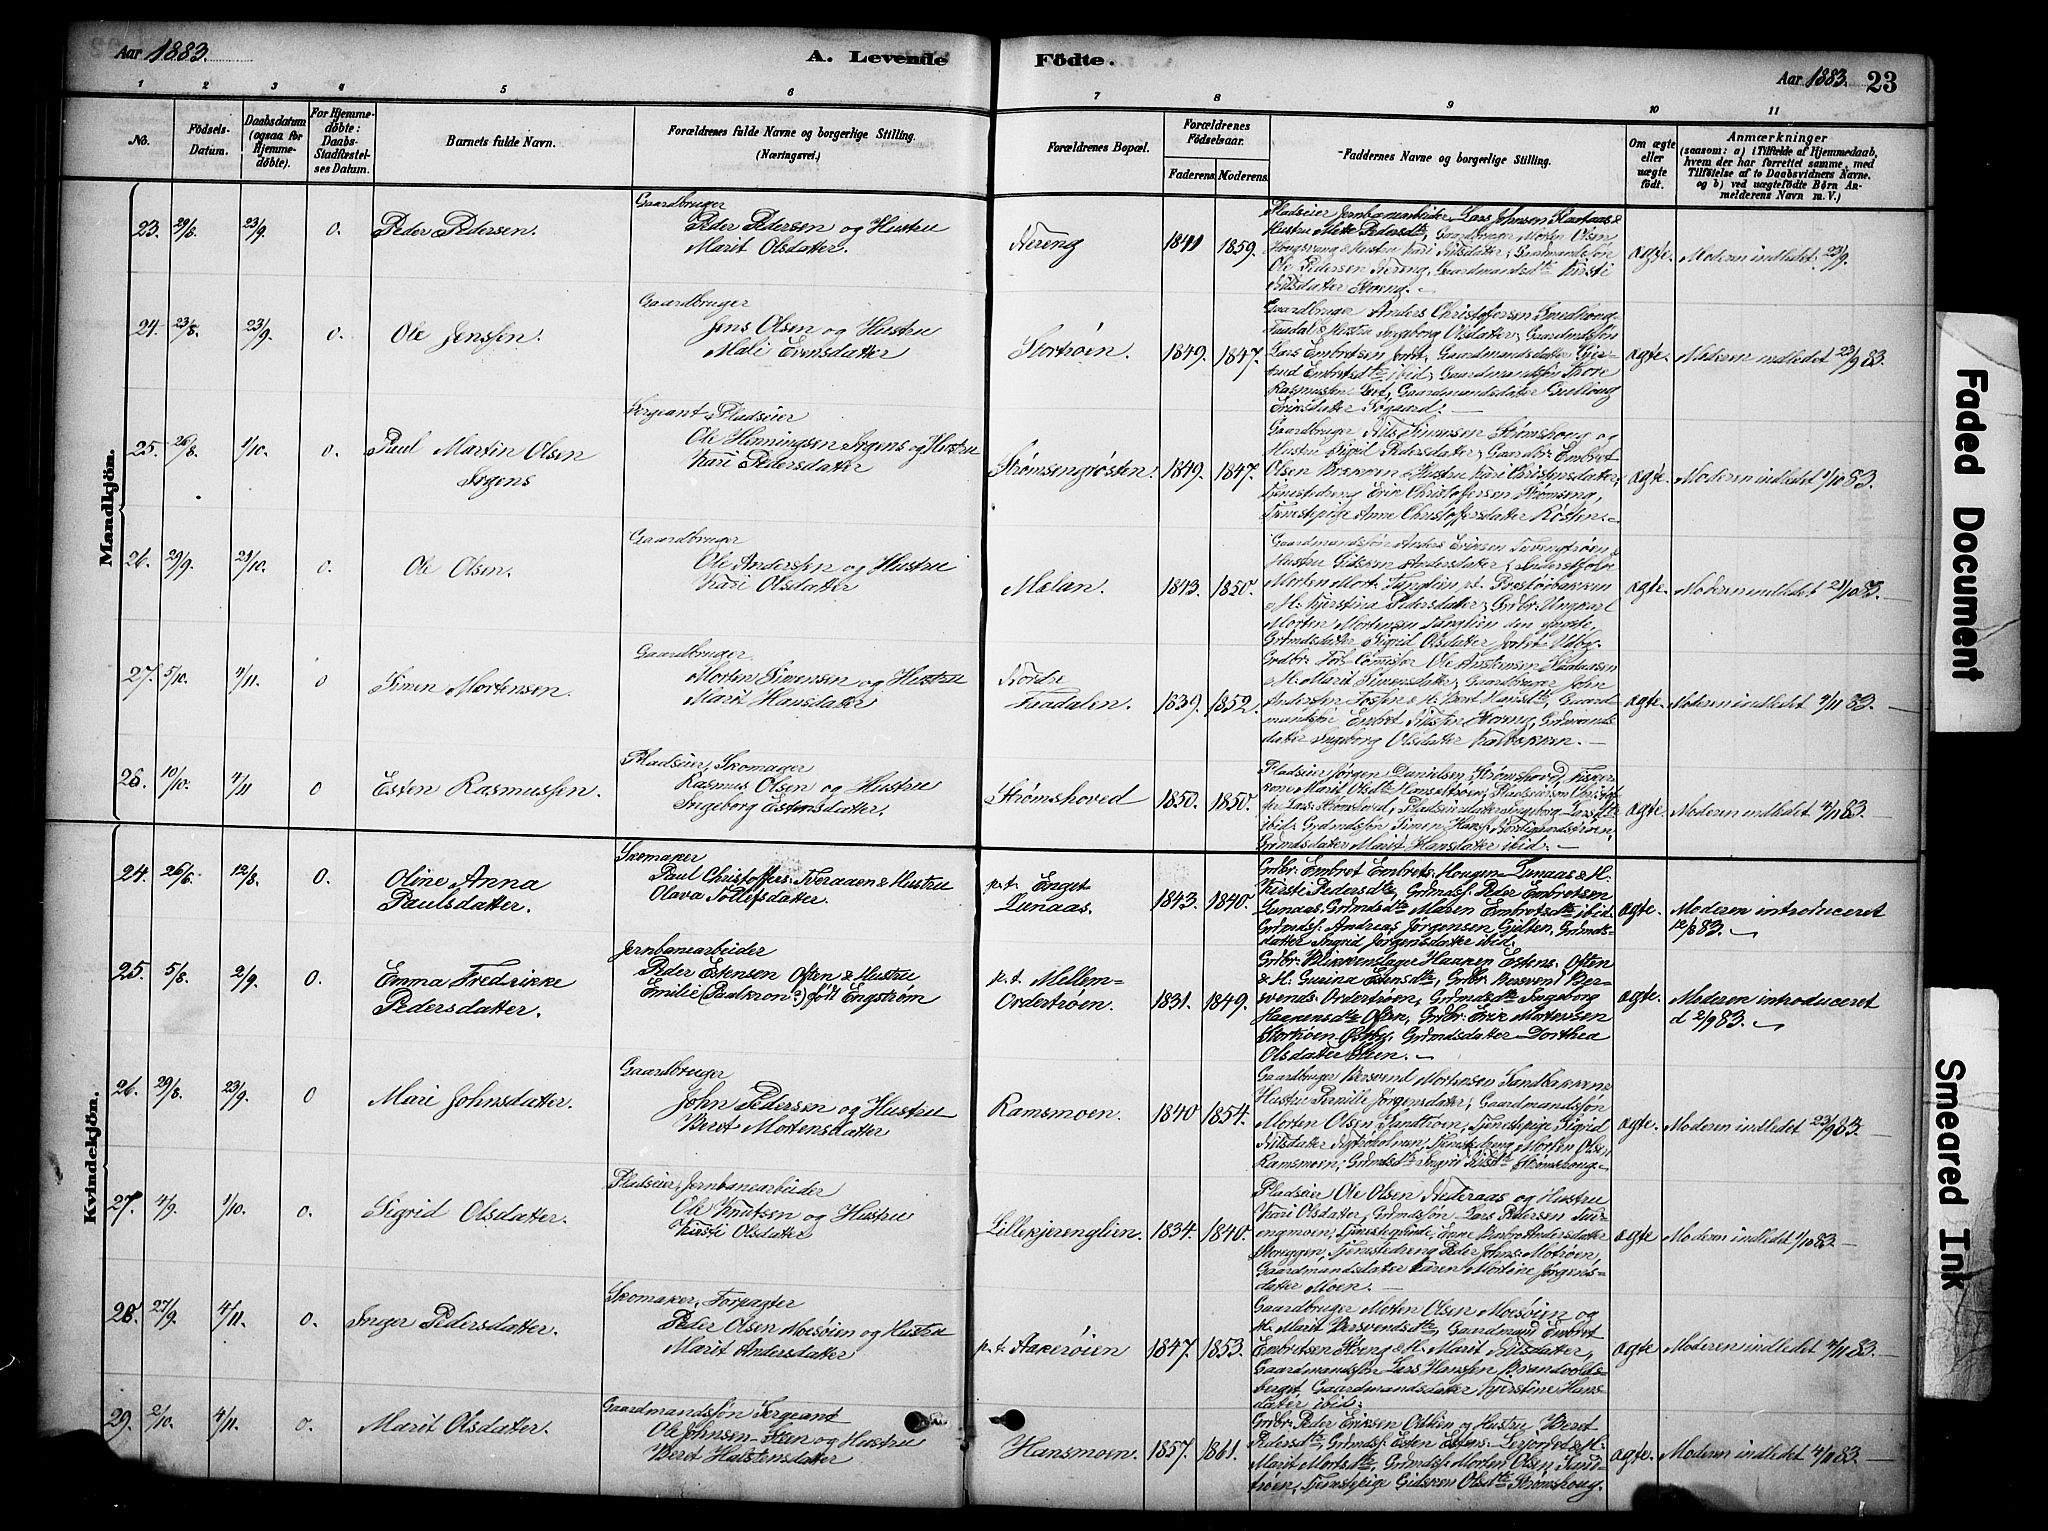 Aar 1883.
A. Levende Födte.
Aar 1883. 23
1 2 3 4 5 6 7 8 9 10 11
No.
Födsels-Datum.
Daabsdatum (ogsaa for Hjemmedöbte).
For Hjemmedöbte: Daabs-Stadfæstelses Datum.
Barnets fulde Navn.
Forældrenes fulde Navne og borgerlige Stilling. (Næringsvei.)
Forældrenes Bopæl.
Forældrenes Födselsaar.
Faderens. Moderens.
Faddernes Navne og borgerlige Stilling.
Om ægte eller uægte födt.
Anmærkninger
(saasom: a) i Tilfælde af Hjemmedaab, hvem der har forrettet samme, med Tilföielse af to Daabsvidners Navne. og b) ved uægtefödte Börn Anmelderens Navn m. V.)
Mandkjön.
23. 29/8 23/9. 0. Peder Pedersen.
Gaardbruger
Peder Pedersen og Hustru
Marit Olsdatter.
Nereng 1841 1859.
Pladseier Jernbanearbeider Lars Johnsen
Hustru Mette Pedersdtr, Gaardbruger Morten Olsen
Ole Pedersen Nereng, Gaardmandsdtr Kirsti
Nilsdatter Storeng.
ægte. Moderen indledet 23/9.
24. 23/8. 23/9. 0. Ole Jenssen.
Gaardbruger
Jens Olsen og Hustru
Mali Evensdatter
Stortrøen. 1849. 1847.
Gaardbruger Anders Christofersen
Hustru Ingeborg Olsdatter, Gaardmandssøn
Lars Embretsen Jortet, Gaardmandsdatter
Embretsdtr ibid, Gaardmandssøn Tore
Rasmussen Jortet, Gaardmandsdatter
Eriksdatter Søgaard.
ægte. Moderen indledet 23/9 83.
25. 26/8. 1/10. 0. Paul Martin Olsen
Irgens
Sergeant, Pladseier
Ole Henningsen Irgens og Hustru
Kari Pedersdatter
Strømsengrøsten. 1849. 1847.
Gaardbruger Nils Simensen Strømshoug og
Hustru Sigrid Pedersdatter, Gaardbr. Embret
Olsen Bakken & Hustru Kari Christensdatter,
Tjenestedreng Erik Christoffersen Strømseng,
Tjenestepige Anne Christoffersdatter Røsten.
ægte. Moderen indledet 1/10 83.
26. 29/9. 21/10. 0. Ole Olsen.
Gaardbruger
Ole Anderssen og Hustru
Kari Olsdatter
Mælan. 1843. 1850.
Gaardmandssøn Anders Eriksen
Hustru Gidsken Andersdatter,
Morten Mort.
H. Kjerstina Pedersdatter, Grdbr. Ungkarl
Morten Mortensen den yngste,
Grdmdsdatter Sigrid Olsdatter Jortet
ægte. Moderen indledet 21/10 83.
27. 5/10. 4/11. 0 Simen Mortensen.
Gaardbruger
Morten Simensen og Hustru
Marit Hansdatter
Nordre
Faadalen. 1839. 1852.
Grdbr. Ole Andersen
H. Marit Simensdatter, Gaardbruger John
Anderssen & H. Beret Hansdtr, Gaard-
mandssøn Embret Nilssen Storeng, Grdmands-
datter Ingeborg Olsdatter
ægte. Moderen indledet 4/11 83.
28. 10/10. 4/11 0 Esten Rasmussen.
Pladseier, Skomager
Rasmus Olsen og Hustru
Ingeborg Estensdatter.
Strømshoved 1850. 1850.
Pladseier Jørgen Danielsen, Strømshoved,
Marit Olsdtr Hanseltrøen,
Lars. Strømshoved, Pladseierdatter Ingeborg Larsdtr
ibid. Grdmdssøn Simen Hans.
Grdmdsdatter Marit Hansdatter ibid.
ægte. Moderen indledet 4/11 83.
Kvindekjön.
24. 26/6. 12/8. 0. Oline Anna
Paulsdatter.
Skomaker
Paul Christoffers. Tveraaen & Hustru
Olava Tollefsdatter.
p.t. Enget
Lunaas. 1843. 1840.
Grdbr. Embret Embrets. Hougen Lunaas & H.
Kirsti Pedersdtr, Grdmdsf. Peder Embretsen
Lunaas, Grdmdsdtr Maren Embretsdtr ibid.
Grdmdsf. Andreas Jørgensen Gjelten, Grdmds-
datter Ingrid Jørgensdatter ibid.
ægte. Moderen introduceret
12/8 83.
25. 5/8. 2/9. 0. Emma Fredrikke
Pedersdatter.
Jernbanearbeider
Peder Estensen Øften & Hustru
Emilie (Paulkrona) født Engstrøm
p.t. Mellem-
Ordertrøen. 1831. 1849.
Grdbr. Blikkenslager Haagen Estens. Øften
& H. Gurina Estensdtr, Grdbr. Bersvend Ber-
svends. Ordertrøen, Grdmdsdtr Ingeborg
Haagensdtr Øften, Grdbr. Erik Mortensen
Stortrøen Østby, Grdmdsdatter Dorthea
Olsdatter Steen.
ægte. Moderen introduceret
d 2/9 83.
26. 29/8. 23/9. 0 Mari Johnsdatter.
Gaardbruger
John Pedersen og Hustru
Beret Mortensdatter
Ramsmoen. 1840 1854.
Gaardbruger Bersvend Mortensen Sandbakken &
Hustru Pernille Jørgensdatter, Gaardmandssøn
Morten Olsen Sandtrøen, Tjenestepige Sigrid
Nilsdatter Tjenestedreng Morten Olsen
Ramsmoen, Grdmdsdtr Ingrid Nilsdtr Strømshoug.
ægte. Moderen indledet 23/9 83.
27. 4/9. 1/10. 0. Sigrid Olsdatter.
Pladseier, Jernbanearbeider
Ole Knutsen og Hustru
Kirsti Olsdatter
Lillekjerenglien. 1834. 1840.
Pladseier Ole Olsen Nederaas og Hustru
Kari Olsdatter, Grdmdssøn Lars Pedersen
Andersdatter
Tjenestedreng Peder Johns. Motrøen,
Gaardmandsdatter Karen Mortine Jørgens-
datter Moen.
ægte Moderen indledet 1/10 83.
28. 27/9. 4/11. 0. Inger Pedersdatter.
Skomaker, Forpagter
Peder Olsen Moesøien og Hustru
Marit Andersdatter
p.t. Aakerøien 1847. 1853.
Gaardbruger Morten Olsen Moesøien og
H. Marit Bersvendsdtr, Gaardmand Embret
Embretsen & H. Marit Nilsdatter,
Gaardmandssøn Lars Hanssen Brandvolds-
berget, Gaardmandsdatter Kjerstine Hans-
datter ibid.
ægte Moderen indledet 4/11 83.
29. 2/10. 4/11. 0. Marit Olsdatter.
Gaardmandssøn Sergeant
Ole Johnsen Steen og Hustru
Beret Halstensdatter
Hansmoen. 1857. 1861.
Grdbr. Peder Eriksen Odlien og Hustru Beret
Pedersdtr, Grdmdsf. Esten Estens. & H.
Marit Mortsdtr, Grdmdsf. Morten Olsen Sand-
trøen, Tjenestepige Gidsken Olsdtr Strømshoug.
ægte. Moderen indledet 4/11 83.
Faded Document
Smeared Ink